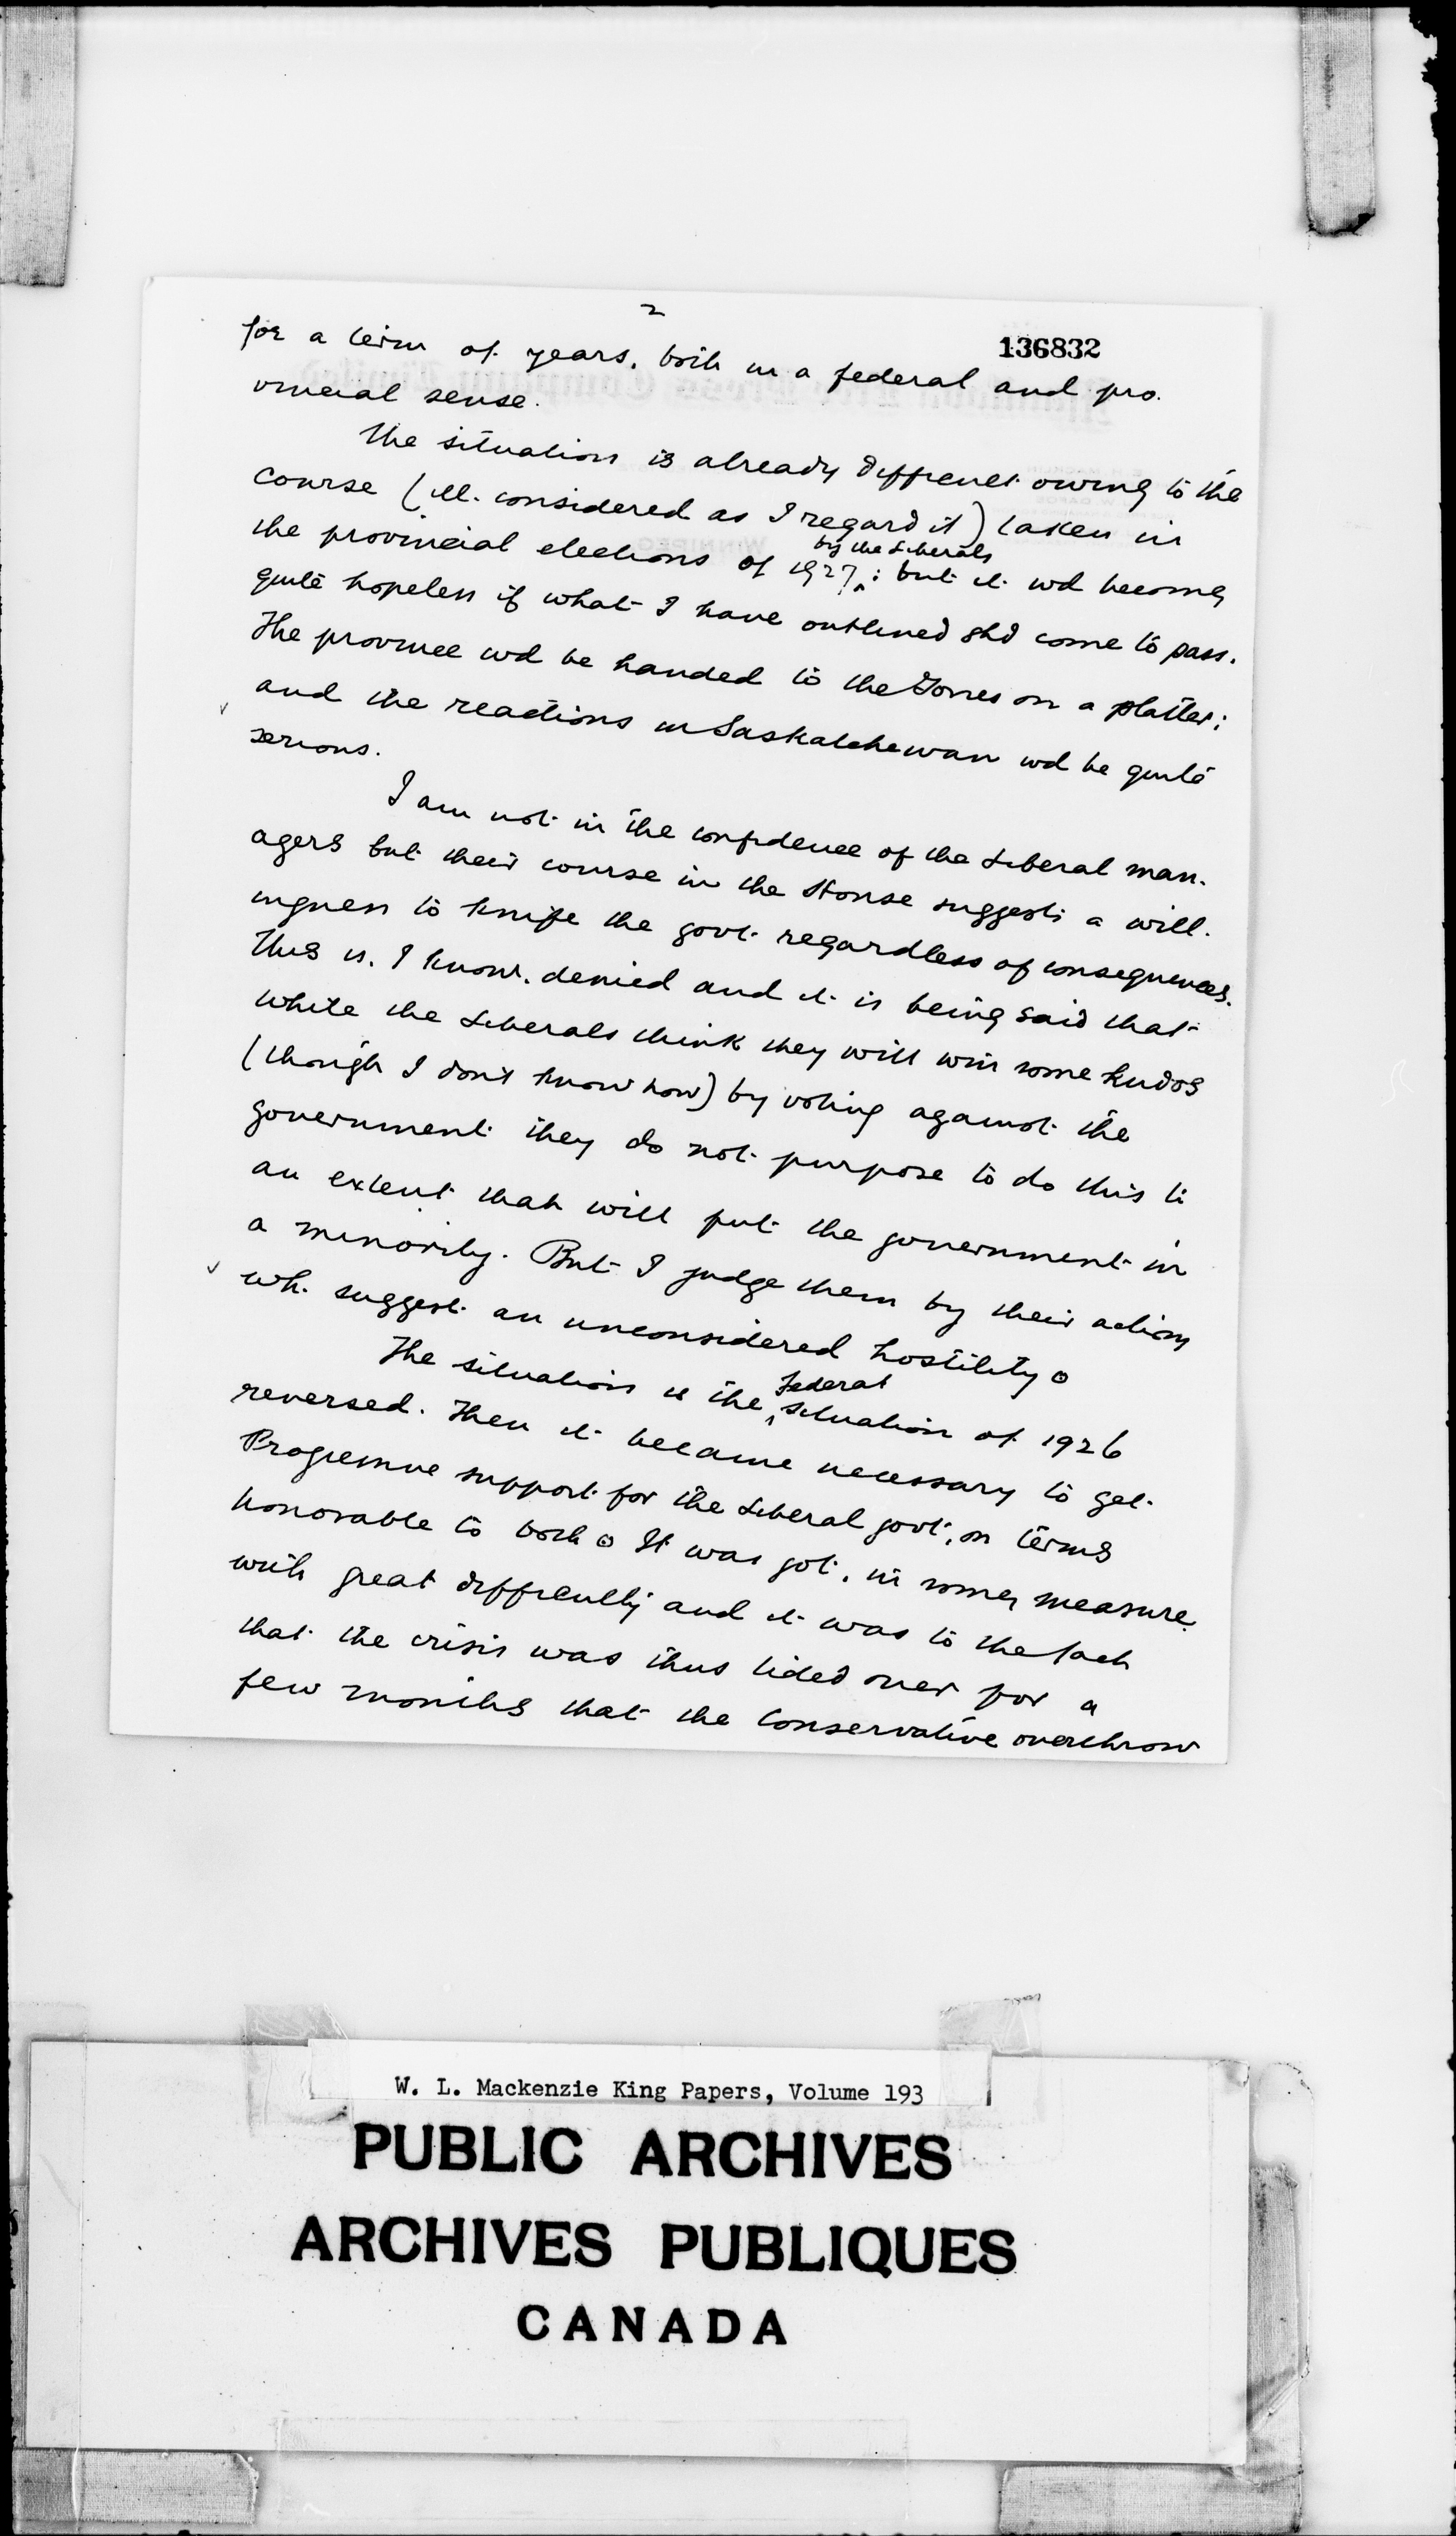 2
136832
for a term of years, both in a federal and pro-
vincial sense.
The situation is already difficult owing to the
course (ill-considered as I regard it) taken in
by the Liberals
the provincial elections of 1927; but it wd become
quite hopeless if what I have outlined shd come to pass.
The province wd be handed to the Tories on a platter;
and the reactions in Saskatchewan wd be quite
serious.
I am not in the confidence of the Liberal man-
agers but their course in the House suggests a will-
ingness to knife the govt regardless of consequences.
This is, I know, denied and it is being said that
while the Liberals think they will win some kudos
(though I don't know how) by voting against the
government they do not purpose to do this to
an extent that will put the government in
a minority. But I judge them by their actions
wh. suggest an unconsidered hostility.
Federal
The situation is the situation of 1926
reversed. Then it became necessary to get
Progressive support for the Liberal govt, on terms
honorable to both. It was got, in some measure,
with great difficulty and it was to the fact
that the crisis was thus tided over for a
few months that the Conservative overthrow
W. L. Mackenzie King Papers, Volume 193
PUBLIC ARCHIVES
ARCHIVES PUBLIQUES
CANADA